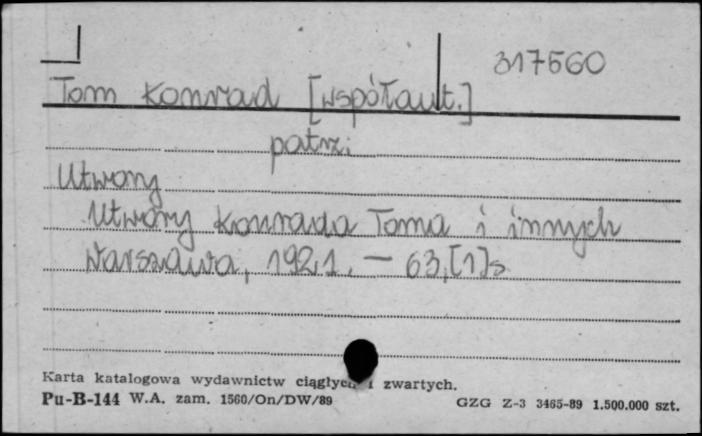 317560
Tom Konrad [współaut.]
patrz:
Utwory
Utwory Konrada Toma i innych
Warszawa, 1921. — 63,[1]s
Karta katalogowa wydawnictw ciągłych i zwartych.
Pu-B-144 W.A. zam. 1560/On/DW/89 GZG Z-3 3465-89 1.500.000 szt.